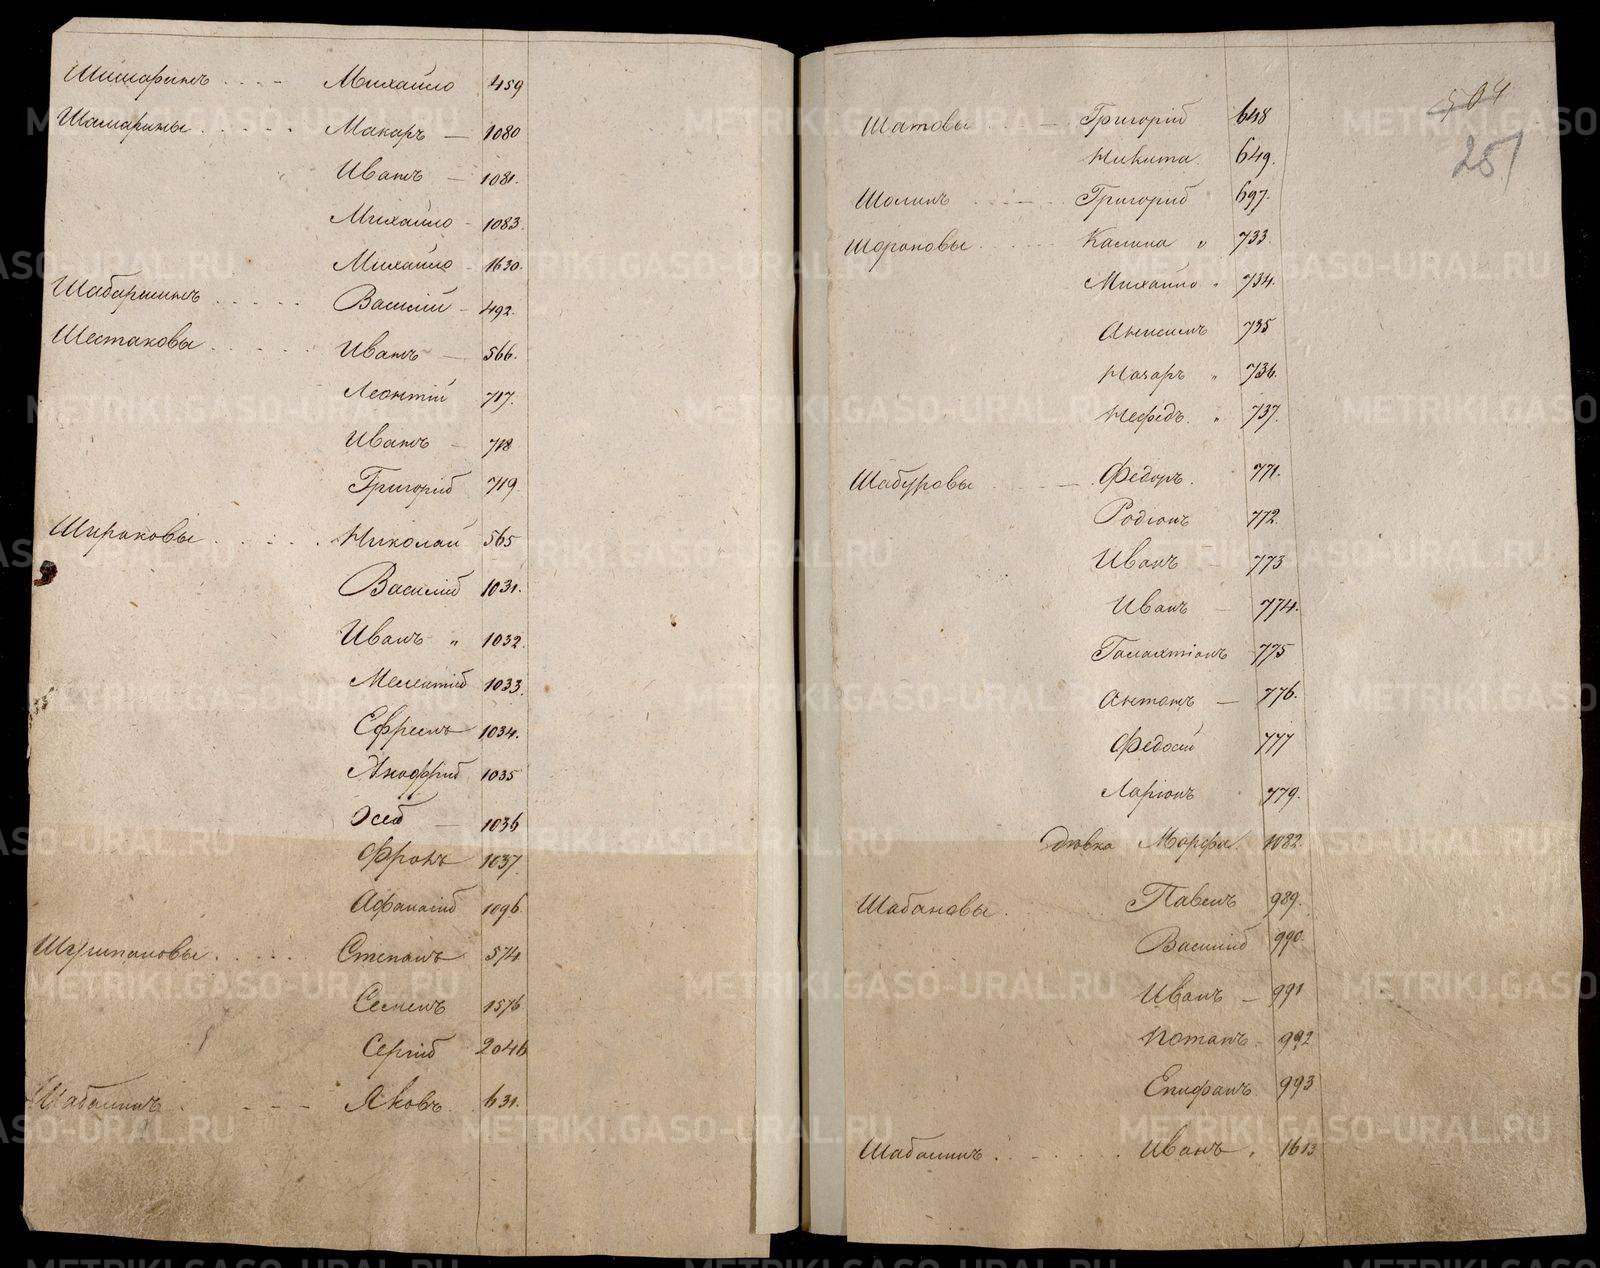 Шишаринъ . . . - Михайло 459
Шамарины . . . . . Макаръ — 1080
Иванъ — 1081.
Михайло - 1083.
Михайло - 1630.
Шабаршинъ . . . . . Василій - 492.
Шестаковы . . . . . Иванъ — 566.
Леонтій 717.
Иванъ — 718
Григорій 719.
Широковы . . . . . Николай 565
Василій 1031.
Иванъ „ 1032.
Мелентій 1033.
Ефремъ 1034.
Аноффрій 1035
Осѣй — 1036
Фролъ 1037.
Афанасій 1096.
Шурмановы . . . . . Степанъ 574
Семенъ 1576
Сергій 2046
Шабалинъ . . - - - Яковъ 631.
504
251
Шатовы . . . — Григорій 648
Никита 649.
Шалинъ . . - — . . Григорій 697.
Шороховы . . . . . Калина „ 733.
Михайло „ 734.
Анисимъ 735
Назаръ „ 736.
Нефедъ „ 737.
Шабуровы . . . — Федоръ. 771.
Родіонъ 772.
Иванъ — 773
Иванъ — 774.
Галахтіонъ 775
Антонъ — 776.
Федосій 777
Ларіонъ 779.
дѣвка Марфа. 1082.
Шабановы . Павелъ 989.
Василій 990.
Иванъ — 991
Потапъ - 992
Епифанъ 993
Шабалинъ . . . . . . Иванъ „ 1613
METRIKI.GASO-URAL.RU